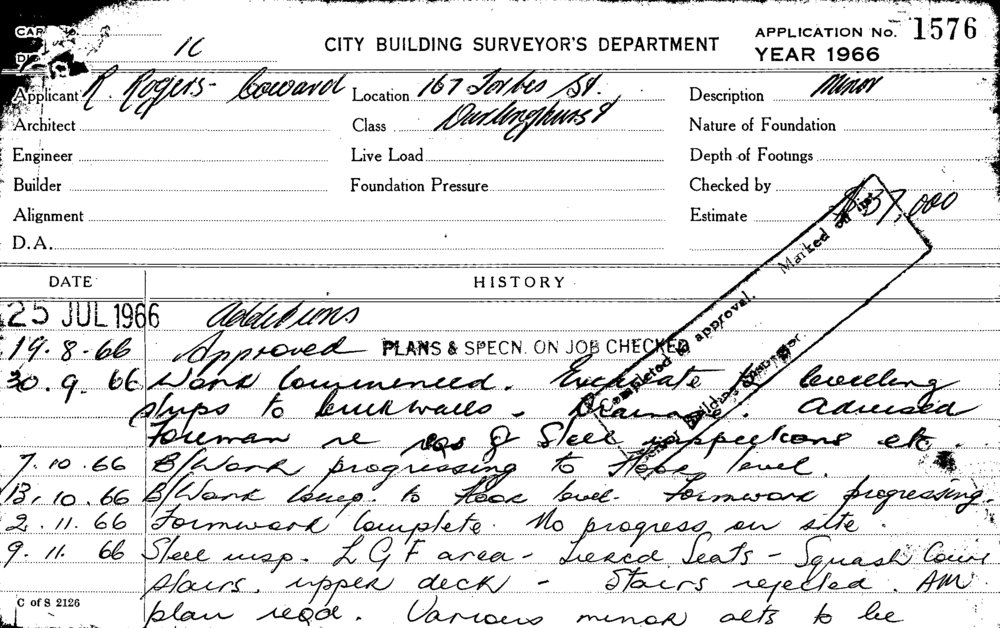 CITY BUILDING SURVEYOR'S DEPARTMENT
APPLICATION No. 1576
YEAR 1966
1C
Applicant R. Rogers-Coward
Location 167 Forbes St.
Description Minor
Architect
Class Darlinghurst
Nature of Foundation
Engineer
Live Load
Depth of Footings
Builder
Foundation Pressure
Checked by
Alignment
Estimate $37,000
D.A.
DATE
HISTORY
25 JUL 1966 additions
19.8.66 Approved PLANS & SPECN. ON JOB CHECKED
30.9.66 Work Commenced. Excavate to levelling
strips to brickwalls - Drainage. advised
Foreman re reqs of Steel inspections etc.
7.10.66 B/Work progressing to floor level.
13.10.66 B/Work comp. to floor level. Formwork progressing.
2.11.66 Formwork Complete. No progress on site.
9.11.66 Steel insp. L G F area - Tiered Seats - Squash Court
stairs, upper deck - Stairs rejected. AM
plan reqd. Various minor alts to be
Completed approval. Marked off list
Building
C of S 2126